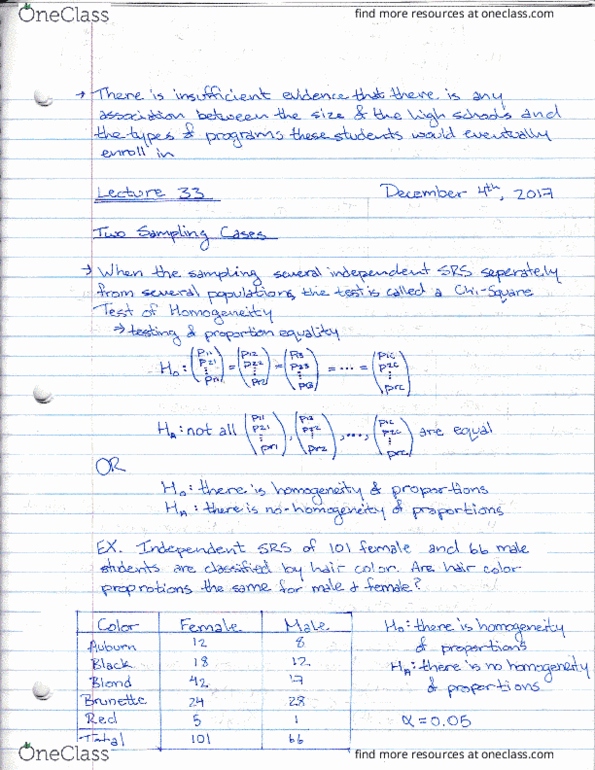 OneClass
find more resources at oneclass.com
→ There is insufficient evidence that there is any
association between the size of the high schools and
the types of programs these students would eventually
enroll in
Lecture 33
December 4th, 2017
Two Sampling Cases
→ When the sampling several independent SRS seperately
from several populations, the test is called a Chi-Square
Test of Homogeneity
→ testing of proportion equality
H₀: (P11 P21 ⋮ Pr1) = (P12 P22 ⋮ Pr2) = (P13 P23 ⋮ Pr3) = ... = (P1c P2c ⋮ Prc)
HA: not all (P11 P21 ⋮ Pr1), (P12 P22 ⋮ Pr2), ..., (P1c P2c ⋮ Prc) are equal
OR
H₀: there is homogeneity of proportions
HA: there is no homogeneity of proportions
EX. Independent SRS of 101 female and 66 male
students are classified by hair color. Are hair color
proprotions the same for male & female?
Color Female Male
Auburn 12 8
Black 18 12
Blond 42 17
Brunette 24 28
Red 5 1
Total 101 66
H₀: there is homogeneity
of proportions
HA: there is no homogeneity
of proportions
α = 0.05
OneClass
find more resources at oneclass.com